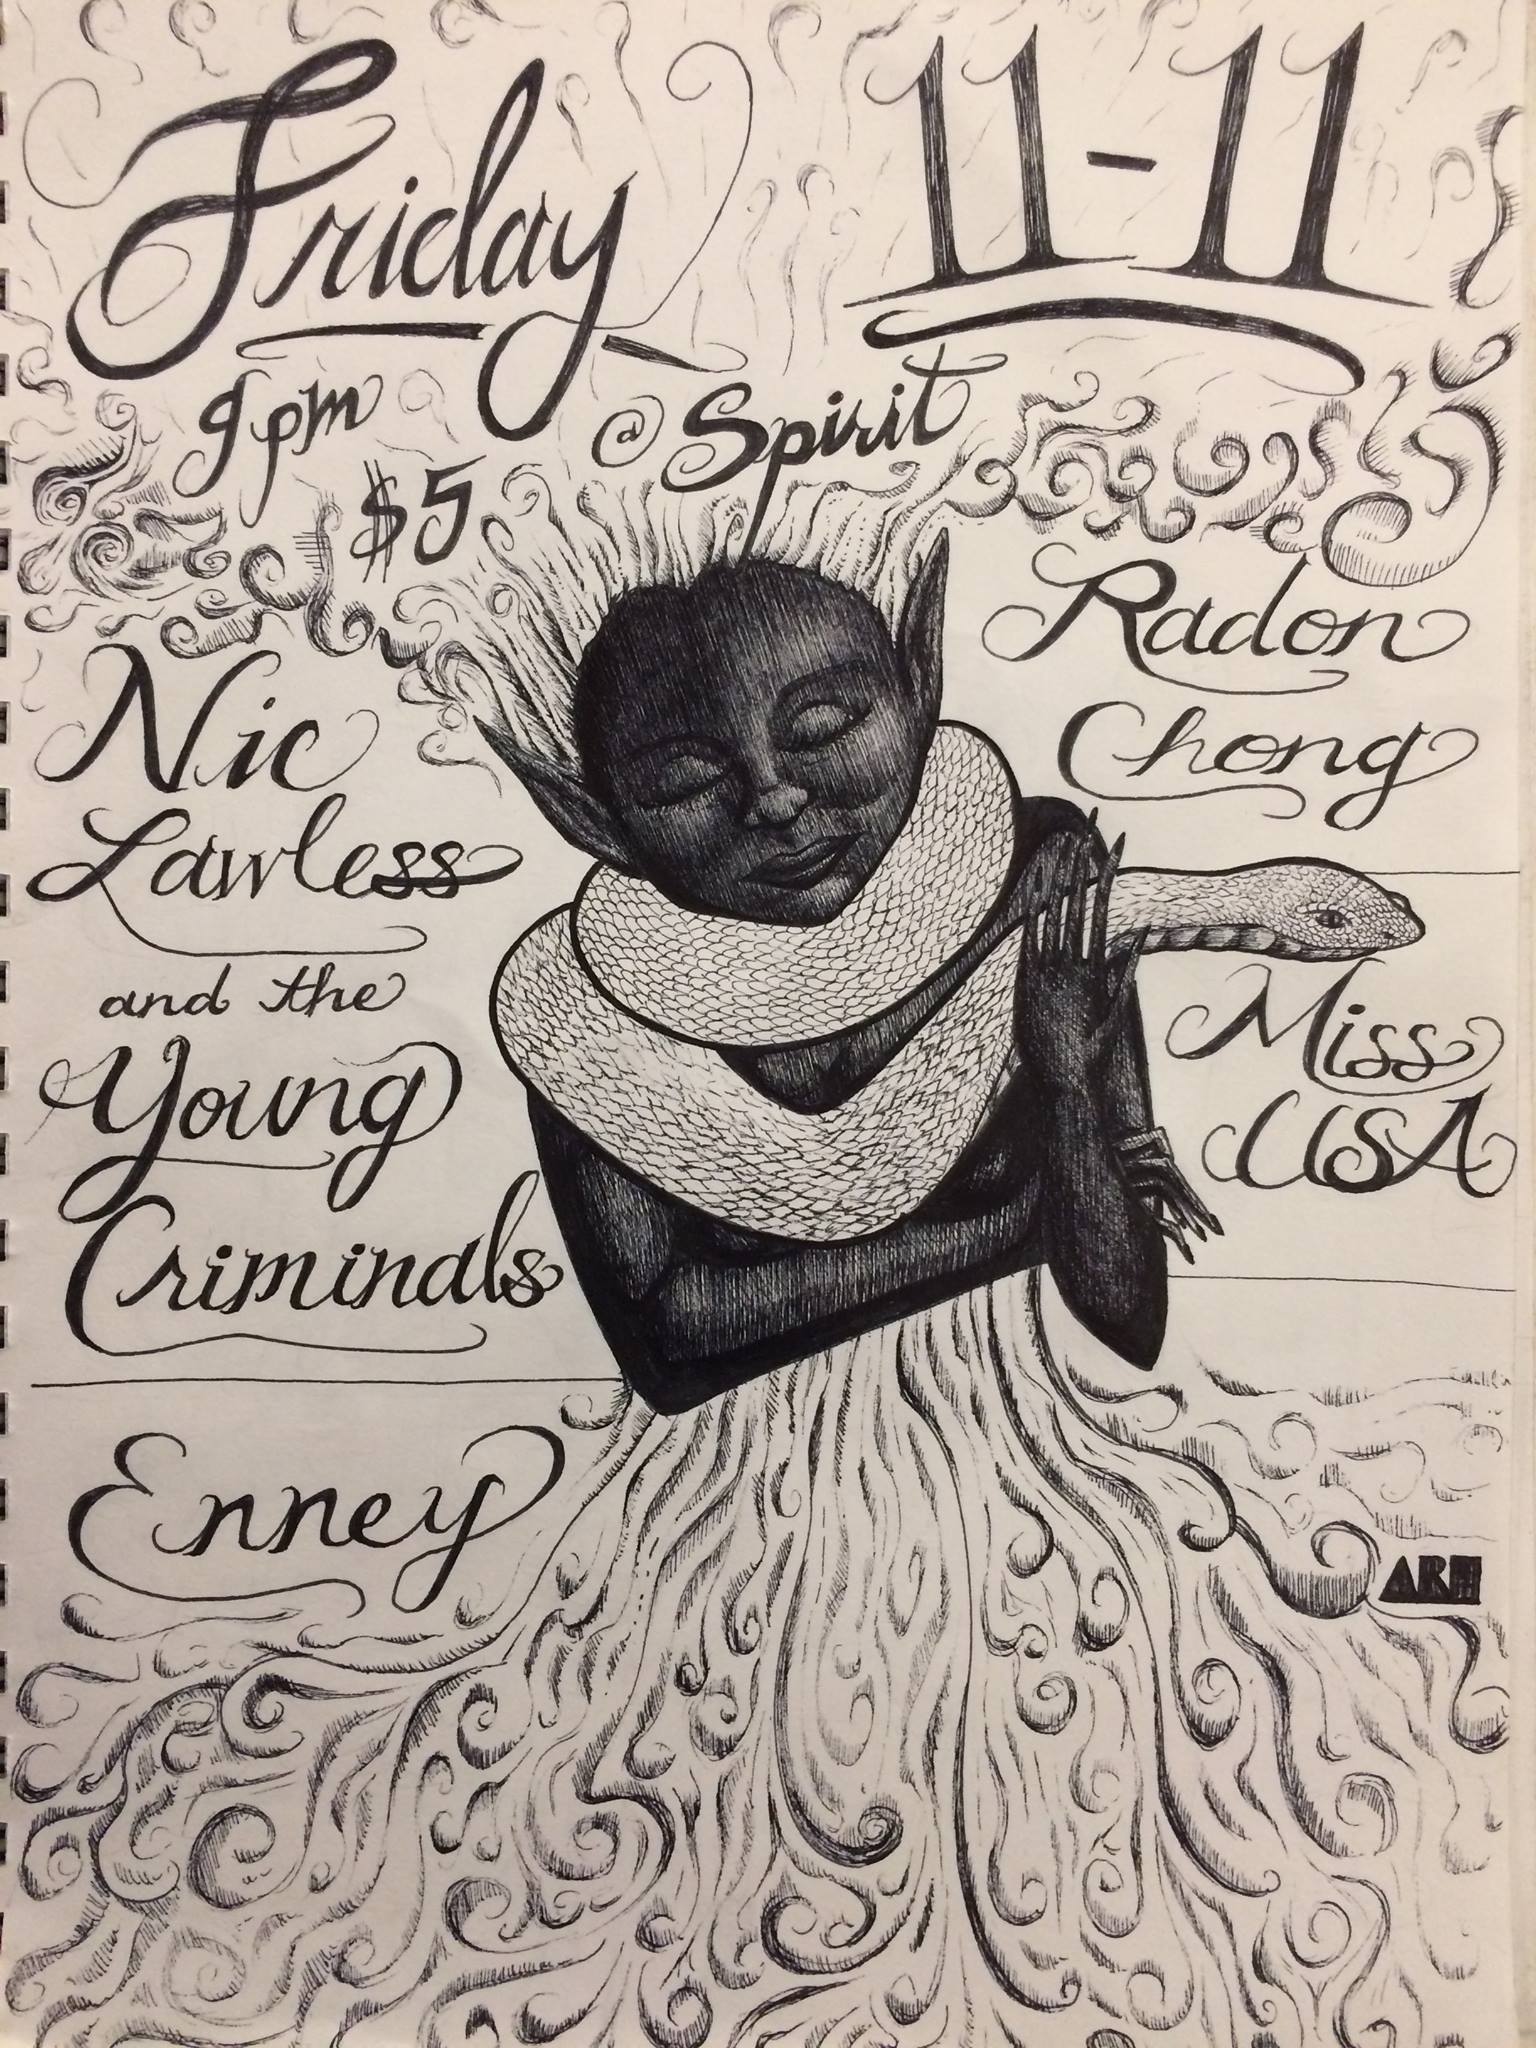 Friday 11-11
9pm @ Spirit
$5
Nic
Lawless
and the
Young
Criminals
Enney
Radon
Chong
Miss
USA
ARH